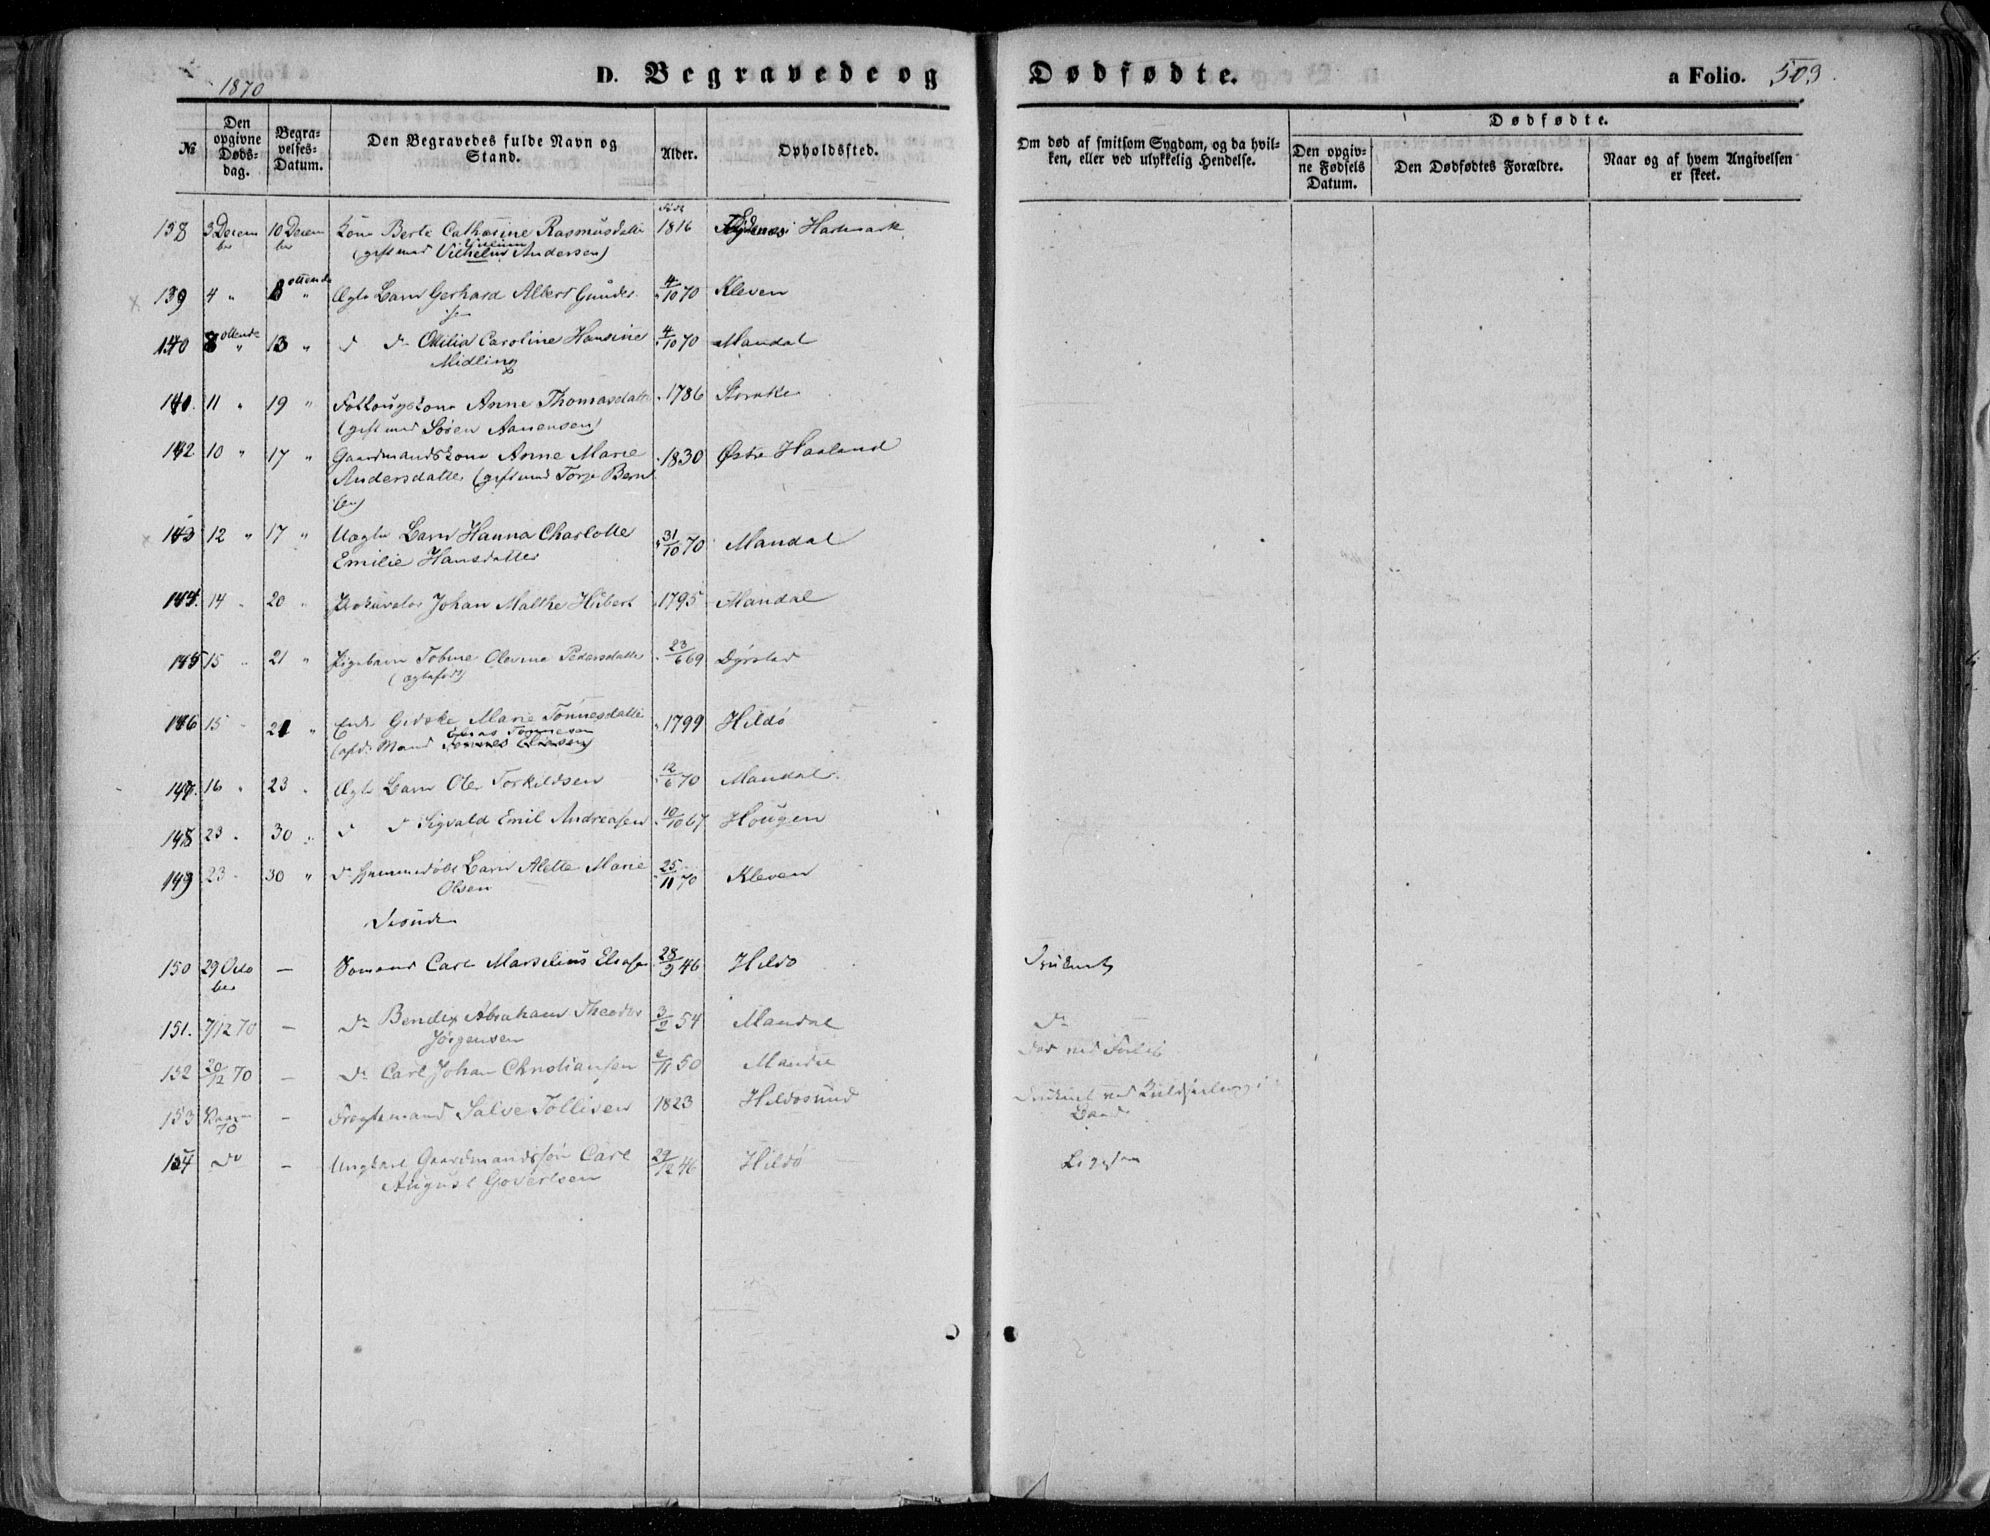 1870
D. Begravede og Dødfødte. a Folio. 503.
№ Den opgivne Døds-dag. Begra-velses-Datum. Den Begravedes fulde Navn og Stand. Alder. Opholdssted. Om død af smitsom Sygdom, og da hvil-ken, eller ved ulykkelig Hendelse. Dødfødte. Den opgiv-ne Fødsels Datum. Den Dødfødtes Forældre. Naar og af hvem Angivelsen er skeet.
138 3 Decem 10 Decem Kone Berte Cathrine Rasmusdatter 1816 Hartmark
ber ber (gift med Andersen)
139 4 " 8 ottende " Ægte Barn Gerhard Albert Gunder 4/10 70 Kleven
sen
140 8 ottende " 13 " d d Caroline Hansine 4/10 70 Mandal
Midling
141. 11 " 19 " Anne Thomasdatter 1786
(gift med Søren Aanensen)
142 10 " 17 " Gaardmandskone Anne Marie 1830 Østre Haaland
Andersdatter (gift med Torje Bernt
sen)
143 12 " 17 " Uægte Barn Hanna Charlotte 31/10 70 Mandal
Emilie Hansdatter
144. 14 " 20 " Prokurator Johan Malthe Hubert 1795 Mandal
145 15 " 21 " Pigebarn Tobine Olevine Pedersdatter 23/6 69 Dyrstad
(ægtefødt)
146 15 " 21 " Enke Gidske Marie Tønnesdatter 1799 Hildø
(afd: Mand Elias Tønnesen)
147. 16 " 23 " Ægte Barn Ole Torkildsen 12/6 70 Mandal
148 23 " 30 " d d Sigvald Emil Andreasen 10/10 67 Hougen
149 23 " 30 " d Hjemmedøbt Barn Alette Marie 25/11 70 Kleven
Olsen
150 29 Octo — Sømand Carl Marselius Eliasen 28/9 46 Hildø Druknet
ber
151. 7/12 70 — do Bendix Abraham Theodor 3/2 54 Mandal do
Jørgensen
152 20/12 70 — do Carl Johan Christiansen /11 50 Mandal Død ved Forlis
153 70 — Salve Tollisen 1823 Hildøsund Druknet ved Kuldseiling i
Baad
154 do — Ungkarl Gaardmandssøn Carl 29/12 46 Hildø Ligesom
August Govertsen